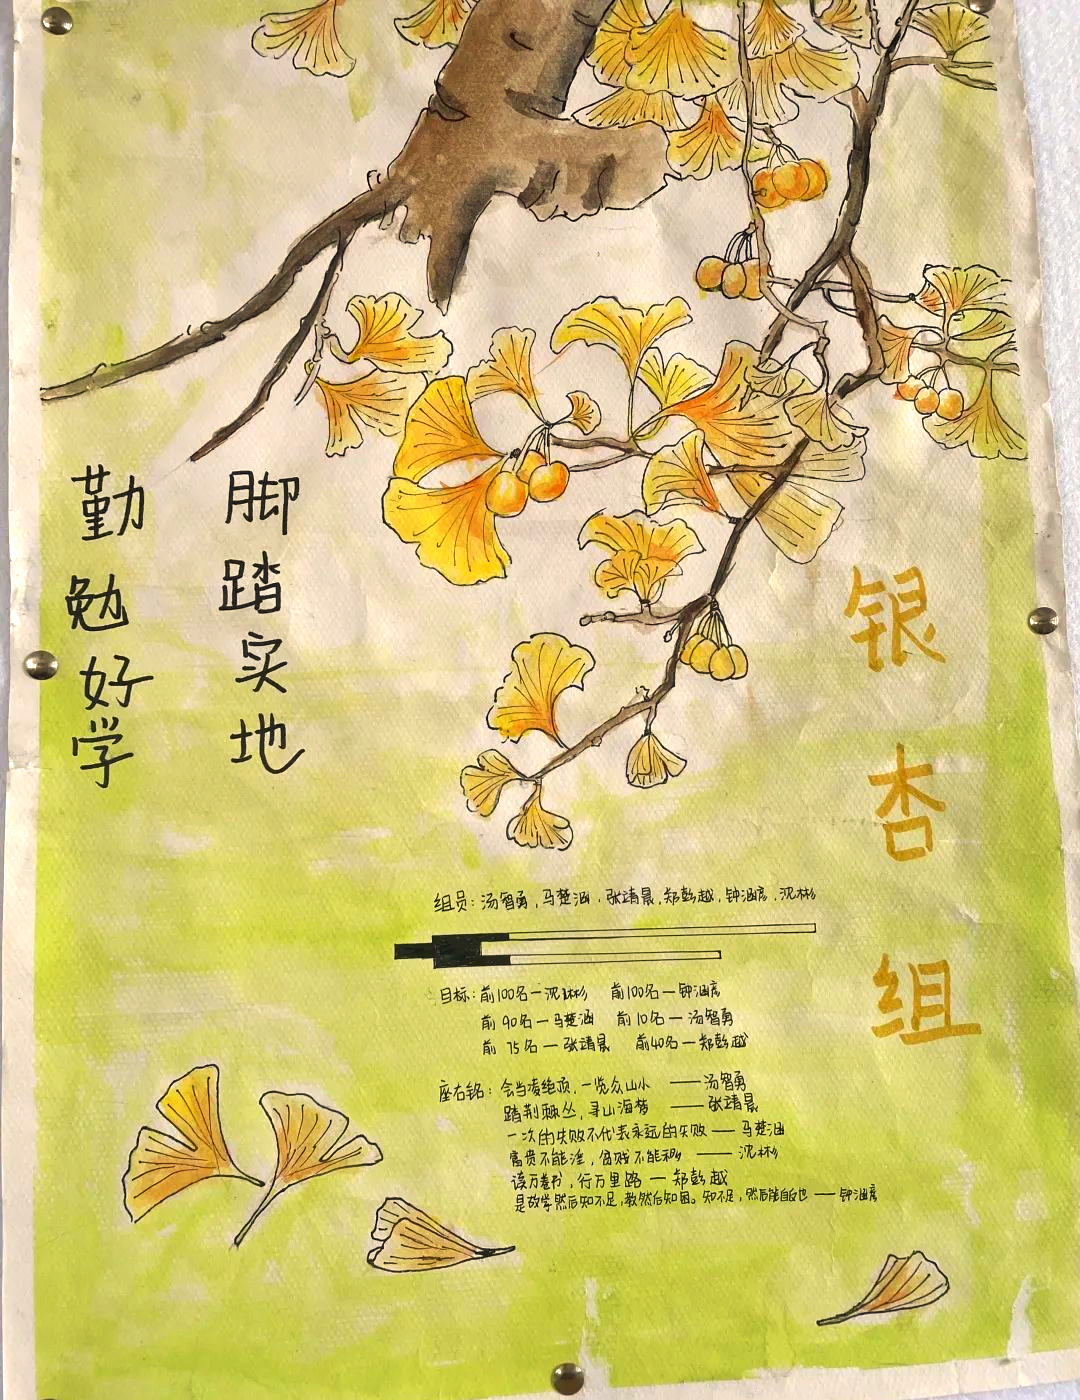 银杏组
脚踏实地
勤勉好学
组员：汤智勇，马楚涵，张靖晨，郑彭越，钟涵彦，沈彬
目标：前100名—沈彬 前100名—钟涵彦
前90名—马楚涵 前10名—汤智勇
前75名—张靖晨 前40名—郑彭越
座右铭：会当凌绝顶，一览众山小 ——汤智勇
踏荆棘丛，寻山海梦 ——张靖晨
一次的失败不代表永远的失败——马楚涵
富贵不能淫，贫贱不能移 ——沈彬
读万卷书，行万里路—郑彭越
是故学然后知不足，教然后知困。知不足，然后能自反也 ——钟涵彦